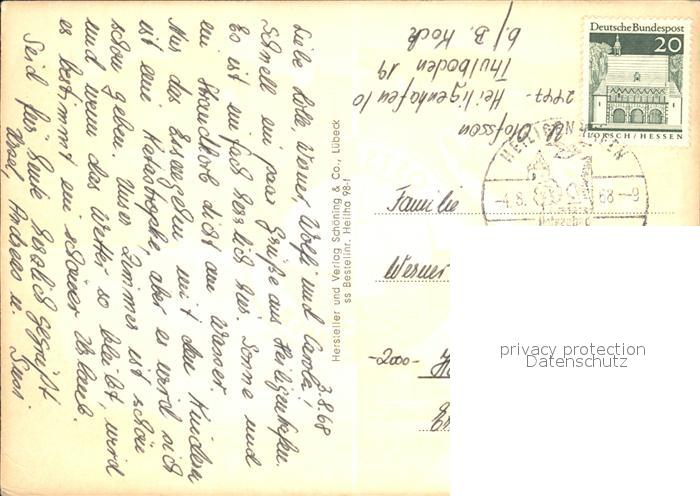 3.8.68
Liebe Lotte, Werner, Wolfi und Conba!
Schnell ein paar Grüße aus Heiligenhafen.
Es ist einfach herrlich hier. Sonne und
ein Strandkorb dicht am Wasser.
Nur das Essengehen mit den Kindern
ist eine Katastrophe, aber es wird sich
schon geben. Unser Zimmer ist schön
und wenn das Wetter so bleibt, wird
es bestimmt ein schöner Urlaub.
Seid für heute herzlich gegrüßt
Ursel, Andreas u.
Hersteller und Verlag Schöning & Co., Lübeck
ss Bestellnr. Heilha 98-f
Olofsson
2447- Heiligenhafen 10
Thulboden 19
b/B. Koch
Deutsche Bundespost
20
LORSCH / HESSEN
HEILIGENHAFEN
-4.8.68-9
Familie
Werner
-2000-
privacy protection
Datenschutz